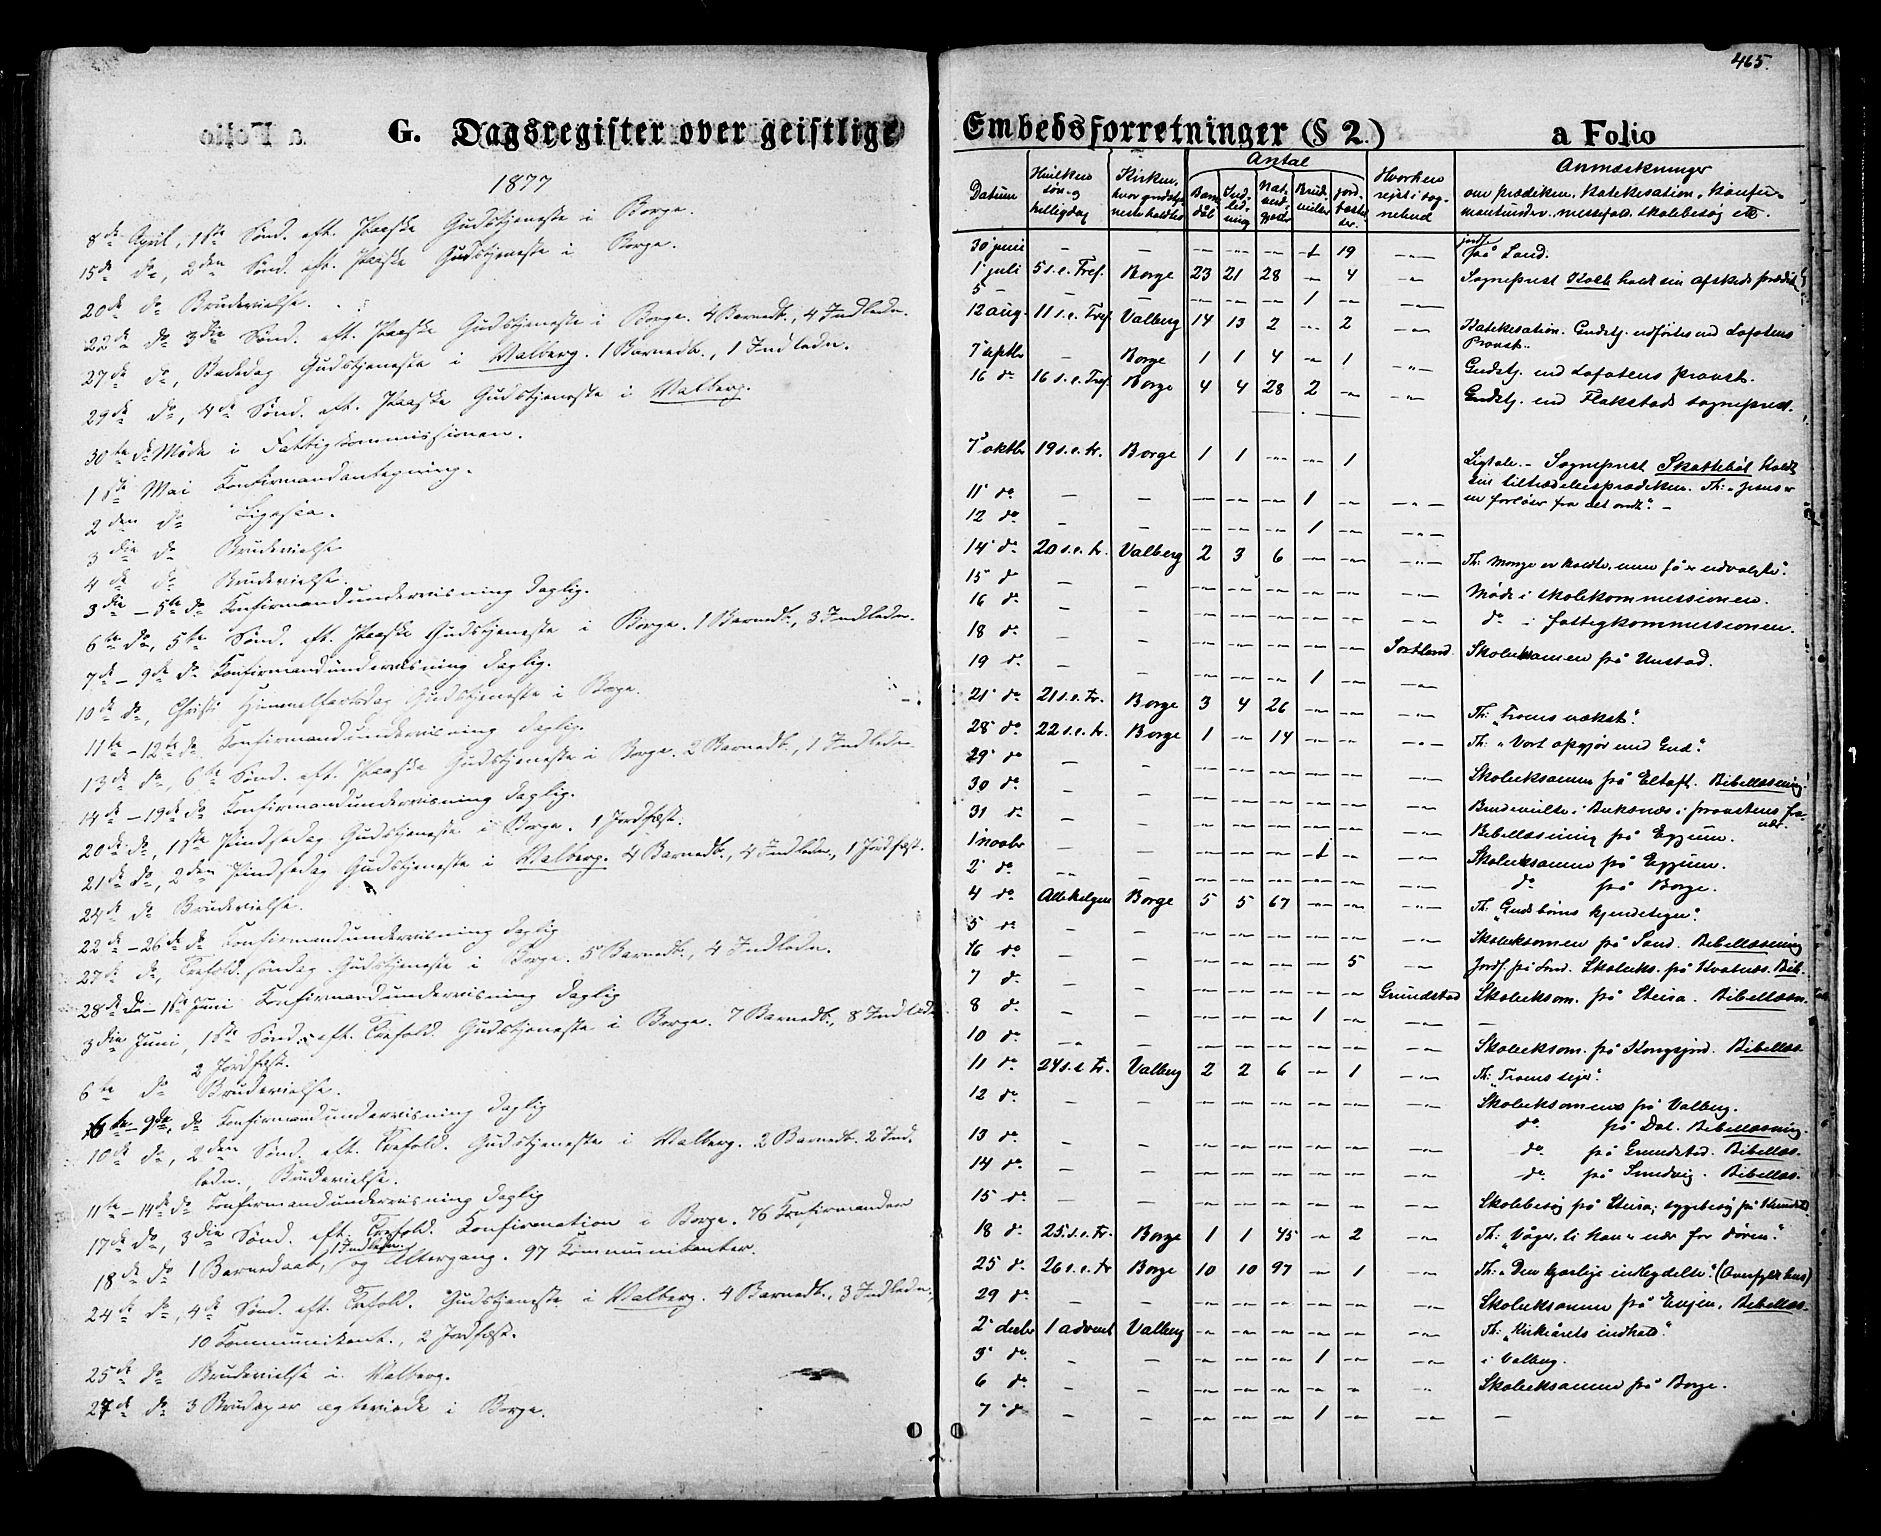 G. Dagsregister over geistlige
1877
8de April, 1ste Sønd. eft. Paaske Gudstjeneste i Borge.
15de do, 2den Sønd. eft. Paaske Gudstjeneste i Borge.
20de do Brudevielse.
22de do 3die Sønd. eft. Paaske Gudstjeneste i Borge. 4 Barnedb., 4 Indledn.
27de do, Bededag Gudstjeneste i Valberg. 1 Barnedb., 1 Indledn.
29de do, 4de Sønd. eft. Paaske Gudstjeneste i Valberg.
30te do Møde i Fattigkommissionen.
1ste Mai Konfirmandantegning.
2den do
3die do Brudevielse
4de do Brudevielse.
3die – 5te do Konfirmandundervisning daglig.
6te do, 5te Sønd. eft. Paaske Gudstjeneste i Borge. 1 Barnedb., 3 Indledn.
7de – 9de do Konfirmandundervisning daglig.
10de do, Christi Himmelfartsdag Gudstjeneste i Borge.
11te – 12te do Konfirmandundervisning daglig.
13de do, 6te Sønd. eft. Paaske Gudstjeneste i Borge. 2 Barnedb., 1 Indledn.
14de – 19de do Konfirmandundervisning daglig.
20de do, 1ste Pindsedag Gudstjeneste i Borge. 1 Jordfæst.
21de do, 2den Pindsedag Gudstjeneste i Valberg. 4 Barnedb., 4 Indledn., 1 Jordfæst.
24de do Brudevielse.
22de – 26de do Konfirmandundervisning daglig
27de do, Trefold.søndag Gudstjeneste i Borge. 5 Barnedb., 4 Indledn.
28de do – 1ste Juni Konfirmandundervisning daglig
3die Juni, 1ste Sønd. eft. Trefold. Gudstjeneste i Borge. 7 Barnedb., 8 Indledn
2 Jordfæst.
6te do Brudevielse.
6te – 9de do Konfirmandundervisning daglig
10de do, 2den Sønd. eft. Trefold. Gudstjeneste i Valberg. 2 Barnedb. 2 Ind.
ledn., Brudevielse.
11te – 14de do Konfirmandundervisning daglig
17de do, 3die Sønd. eft. Trefold. Konfirmation i Borge. 76 Konfirmander
18de do 1 Barnedaab, 1 Indledn. og Altergang. 97 Kommunikanter.
24de do, 4de Sønd. eft. Trefold. Gudstjeneste i Valberg. 4 Barnedb., 3 Indledn.,
10 Kommunikant., 2 Jordfæst.
25de do Brudevielse i Valberg.
27de do 3 Brudepar ægteviede i Borge.
465.
Embedsforretninger (§ 2.) a Folio
Datum | Hvilken søn- og helligdag | Kirken, hvor gudstjenesten holdtes | Antal | Barnedåb | Indledning | Nat. | Brudvielser | Jordfæstelser | Hvorhen rejst i sognebud | Anmærkninger om prædiken, katekesation, konfirmantunder., skolebesøg etc.
30 juni – – – – – 1 19 – jordf. på Sand.
1 juli 5 s. e. Tref. Borge 23 21 28 – 4 – Sogneprest Kolb holdt sin afskeds prædik.
5 – – – – – 1 – –
12 aug. 11 s. e. Tref. Valberg 14 13 2 – 2 – Katekesation. Gudstj. udførtes ved Lofotens Provst.
7 septbr – Borge 1 1 4 – 1 – Gudstj. ved Lofotens provst.
16 do 16 s. e. Tref. Borge 4 4 28 2 – – Gudstj. ved Flakstads sogneprest.
7 oktbr 19 s. e. tr. Borge 1 1 – – 1 Ligtale. – Sogneprest Skattebøl holdt
sin tiltrædelsesprædiken. Th: „Jesus er
en forløser fra det onde“. –
11 do – – – – – 1 – –
12 do – – – – – 1 – –
14 do 20 s. e. tr. Valberg 2 3 6 – – – Th: Mange er kaldte, men få er udvalgte“.
15 do – – – – – – – – Møde i skolekommissionen.
16 do – – – – – – – – do i fattigkommissionen.
18 do – – – – – – – Sortland Skoleeksamen på Unstad.
19 do – – – – – 1 – –
21 do 21 s. e. tr. Borge 3 4 26 – – – Th: „Troens vækst“.
28 do 22 s. e. tr. Borge 1 – 14 – – – Th: „Vort opgjør med Gud“.
29 do – – – – – – – – Skoleeksamen på Eltoft. Bibellæsning.
30 do – – – – – – – – Brudevielse i Buksnæs i provstens fravær.
31 do – – – – – – – – Bibellæsning på Eggum.
1 novbr – – – – – 1 – – Skoleeksamen på Eggum.
2 do – – – – – – – – do på Borge.
4 do Allehelgen Borge 5 5 67 – – – Th: „Guds børns kjendetegn“.
5 do – – – – – – – – Skoleeksamen på Sand. Bibellæsning
6 do – – – – – – 5 – Jordf på Sand. Skoleeks. på Kvalnæs. Bib.
7 do – – – – – – – Grundstad Skoleeksam. på Steira. Bibellæsn.
8 do – – – – – 1 – – –
10 do – – – – – – – – Skoleeksam. på Kongsjord. Bibellæs.
11 do 24 s. e. tr. Valberg 2 2 6 – 1 – Th: „Troens sejer“.
12 do – – – – – – – – Skoleeksamen på Valberg.
do på Dal. Bibellæsning.
13 do – – – – – – – – do på Grundstad. Bibellæs.
14 do – – – – – – – – do på Sundvig. Bibellæs.
15 do – – – – – – – – Skolebesøg på Steira; sygebesøg på
18 do 25. s. e. tr. Borge 1 1 45 – 2 – Th: „Våger, ti han er nær for døren“.
25 do 26 s. e. tr Borge 10 10 97 – 1 – Th: „Den kjærlige indbydelse“. (Overfyldt hus)
29 do – – – – – – – – Skoleeksamen på Bibellæs.
2 decbr 1 advent Valberg – – – – – – Th: „Kirkeårets indhold“.
3 do – – – – – 1 – – i Valberg.
6 do – – – – – – – – Skoleeksamen på Borge.
7 do – – – – – 1 – – –